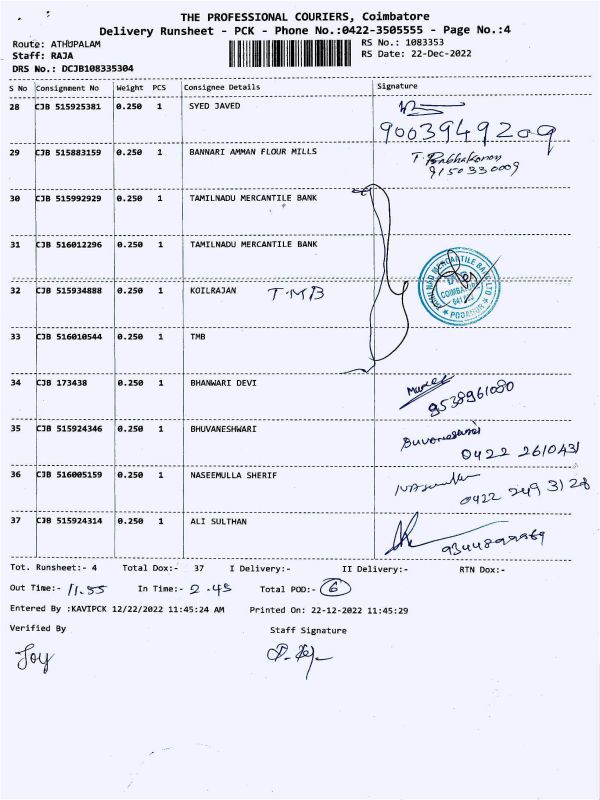 THE PROFESSIONAL COURIERS, Coimbatore
Delivery Runsheet - PCK - Phone No.:0422-3505555 - Page No.:4
Route: ATHUPALAM RS No.: 1083353
Staff: RAJA RS Date: 22-Dec-2022
DRS No.: DCJB108335304
S No Consignment No Weight PCS Consignee Details Signature
28 CJB 515925381 0.250 1 SYED JAVED
9003949209
29 CJB 515883159 0.250 1 BANNARI AMMAN FLOUR MILLS T. Prabhakaran
9150330009
30 CJB 515992929 0.250 1 TAMILNADU MERCANTILE BANK
31 CJB 516012296 0.250 1 TAMILNADU MERCANTILE BANK
TAMILNAD MERCANTILE BANK LTD
COIMBATORE
* PODANUR *
32 CJB 515934888 0.250 1 KOILRAJAN TMB
33 CJB 516010544 0.250 1 TMB
34 CJB 173438 0.250 1 BHANWARI DEVI
9538961080
35 CJB 515924346 0.250 1 BHUVANESHWARI Buvaneswari
0422 2610431
36 CJB 516005159 0.250 1 NASEEMULLA SHERIF
0422 249 3128
37 CJB 515924314 0.250 1 ALI SULTHAN
Tot. Runsheet:- 4 Total Dox:- 37 I Delivery:- II Delivery:- RTN Dox:-
Out Time:- 11.55 In Time:- 2.45 Total POD:- 6
Entered By :KAVIPCK 12/22/2022 11:45:24 AM Printed On: 22-12-2022 11:45:29
Verified By Staff Signature
Joy